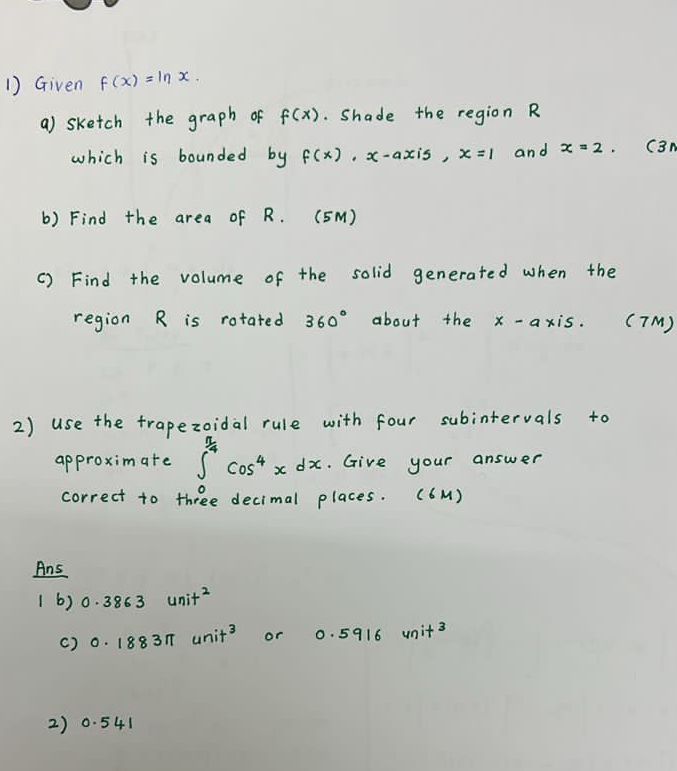 1) Given f(x) = ln x.
a) Sketch the graph of f(x). Shade the region R
which is bounded by f(x), x-axis, x=1 and x=2. (3M
b) Find the area of R. (5M)
c) Find the volume of the solid generated when the
region R is rotated 360° about the x-axis. (7M)
2) Use the trapezoidal rule with four subintervals to
approximate ∫₀^(π/4) cos⁴ x dx. Give your answer
correct to three decimal places. (6M)
Ans
1 b) 0.3863 unit²
c) 0.1883π unit³ or 0.5916 unit³
2) 0.541